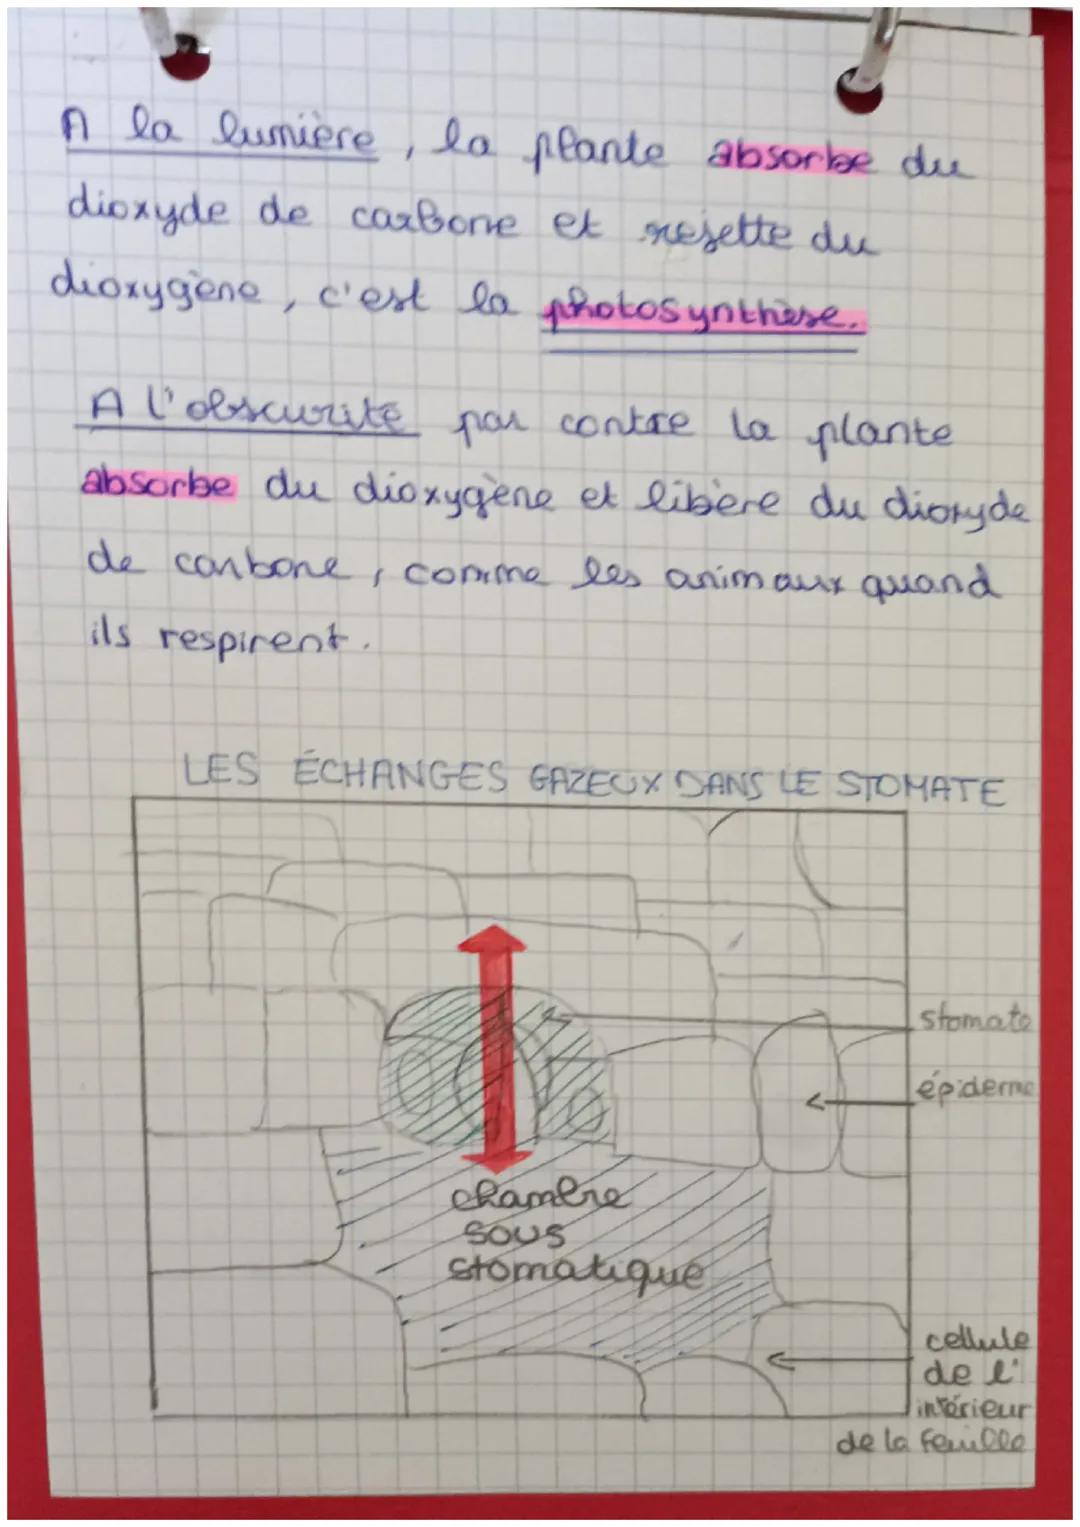 A la lumière, la plante absorbe du
dioxyde de carbone et rejette du
dioxygène, c'est la photosynthèse.
A l'obscurité par contre la plante
absorbe du dioxygène et libère du dioxyde
de carbone, comme les animaux quand
ils respirent.
LES ÉCHANGES GAZEUX DANS LE STOMATE
stomate
épiderme
chambre
sous
stomatique
cellule
de l'
intérieur
de la feuille